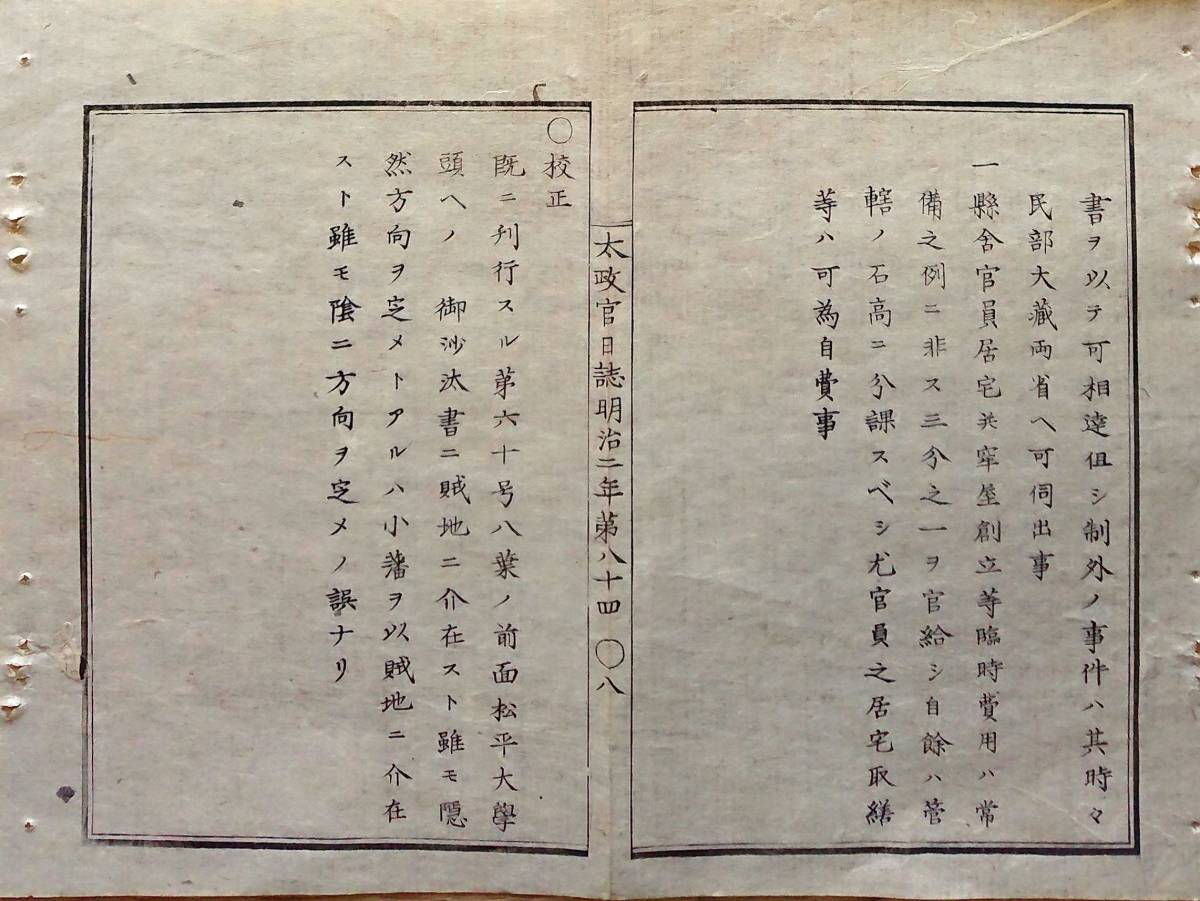 書ヲ以テ可相達伹シ制外ノ事件ハ其時々
民部大藏両省ヘ可伺出事
一縣舎官員居宅共牢屋創立等臨時費用ハ常
備之例ニ非ス三分之一ヲ官給シ自餘ハ管
轄ノ石高ニ分課スベシ尤官員之居宅取繕
等ハ可為自費事
太政官日誌明治二年第八十四 〇八
〇校正
既ニ刋行スル第六十号八葉ノ前面松平大學
頭ヘノ 御沙汰書ニ賊地ニ介在スト雖モ隠
然方向ヲ定メトアルハ小藩ヲ以賊地ニ介在
スト雖モ陰ニ方向ヲ定メノ誤ナリ